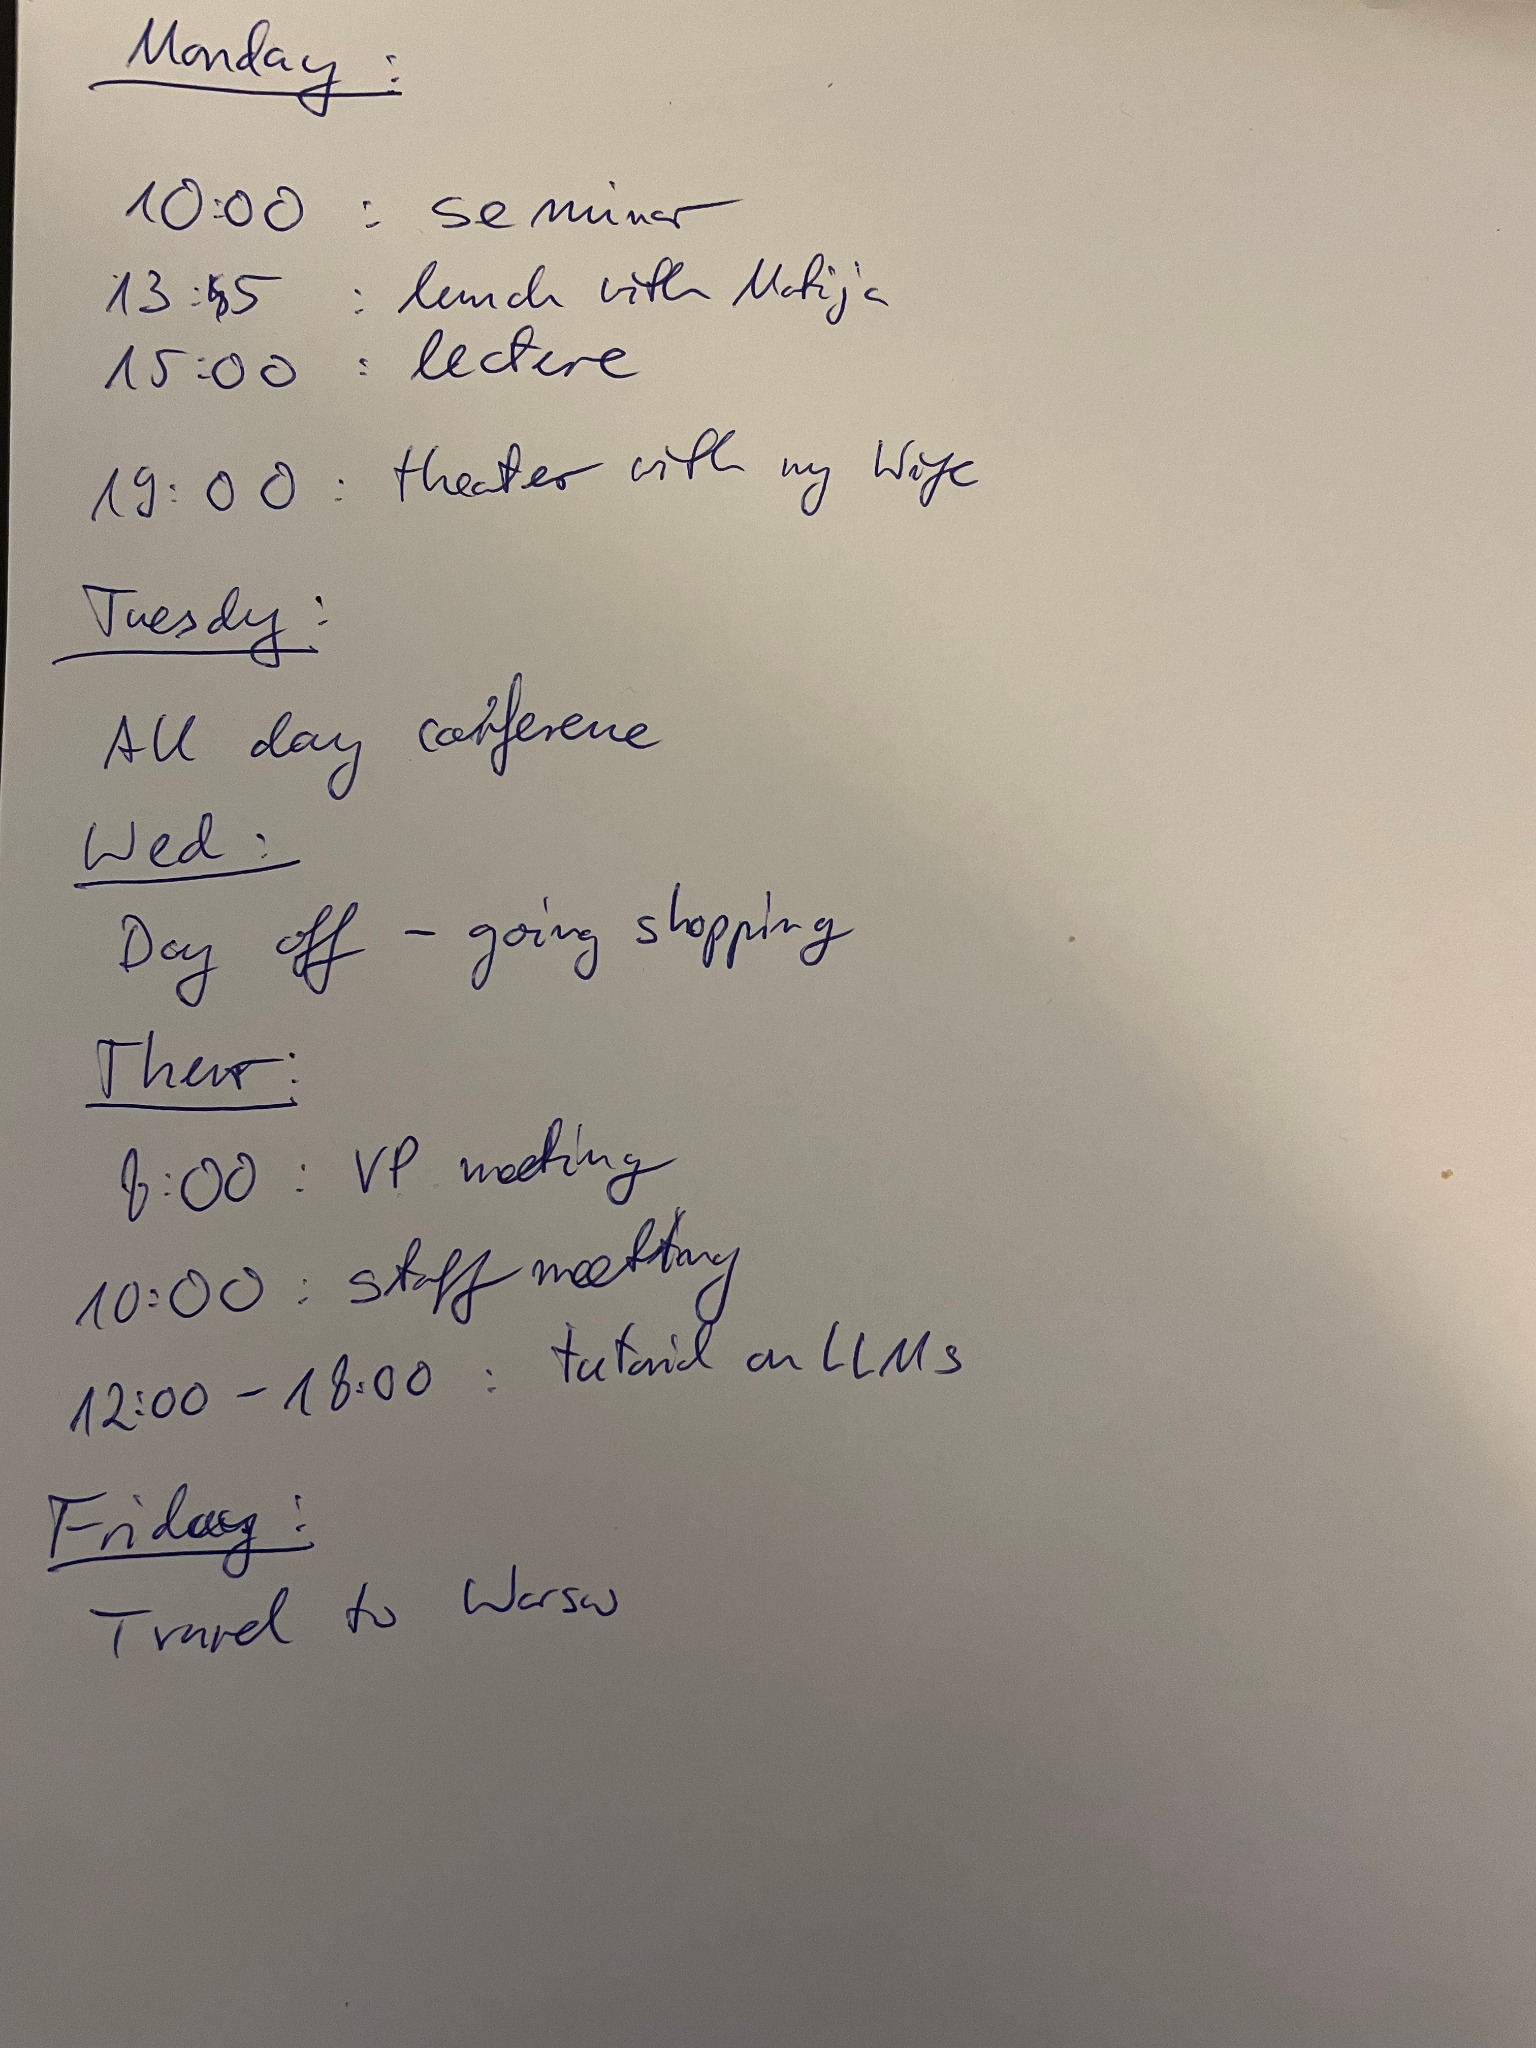 Monday:
10:00 : seminar
13:45 : lunch with Matija
15:00 : lecture
19:00 : theater with my Wife
Tuesday:
All day conference
Wed:
Day off - going shopping
Thur:
8:00 : VP meeting
10:00 : staff meeting
12:00 - 18:00 : tutorial on LLMs
Friday:
Travel to Warsaw